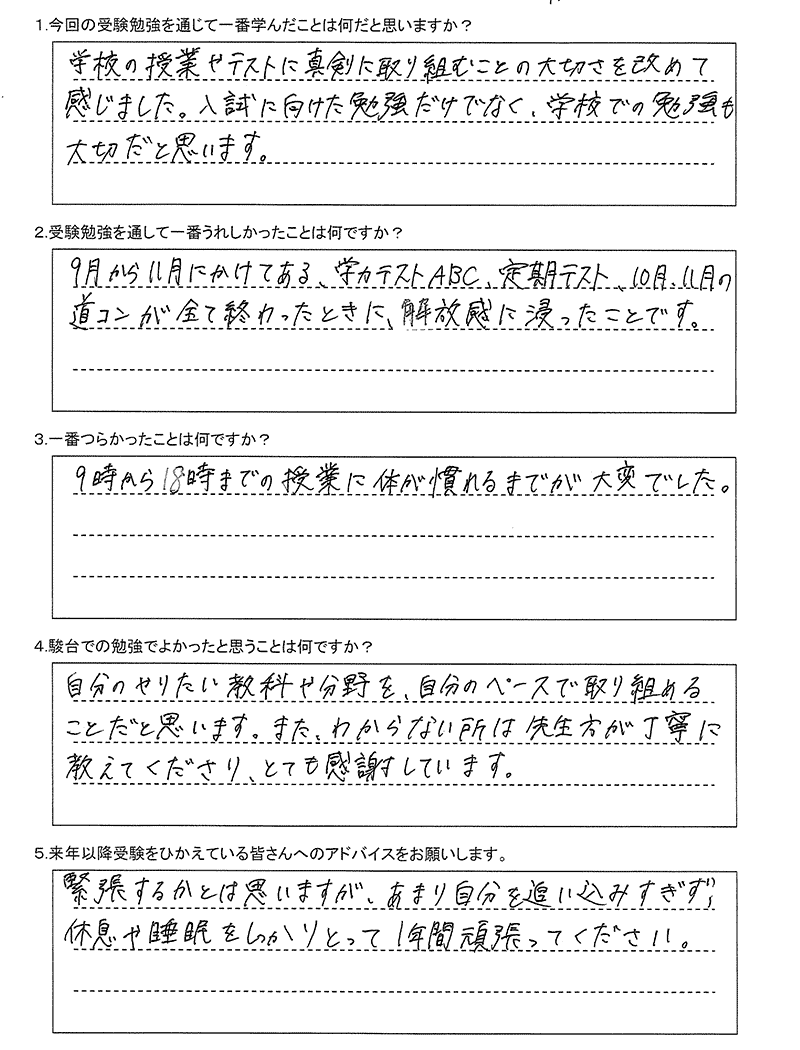 1.今回の受験勉強を通じて一番学んだことは何だと思いますか？
学校の授業やテストに真剣に取り組むことの大切さを改めて
感じました。入試に向けた勉強だけでなく、学校での勉強も
大切だと思います。
2.受験勉強を通して一番うれしかったことは何ですか？
9月から11月にかけてある、学力テストABC、定期テスト、10月、11月の
道コンが全て終わったときに、解放感に浸ったことです。
3.一番つらかったことは何ですか？
9時から18時までの授業に体が慣れるまでが大変でした。
4.駿台での勉強でよかったと思うことは何ですか？
自分のやりたい教科や分野を、自分のペースで取り組める
ことだと思います。また、わからない所は先生方が丁寧に
教えてくださり、とても感謝しています。
5.来年以降受験をひかえている皆さんへのアドバイスをお願いします。
緊張するかとは思いますが、あまり自分を追い込みすぎず、
休息や睡眠をしっかりとって1年間頑張ってください。